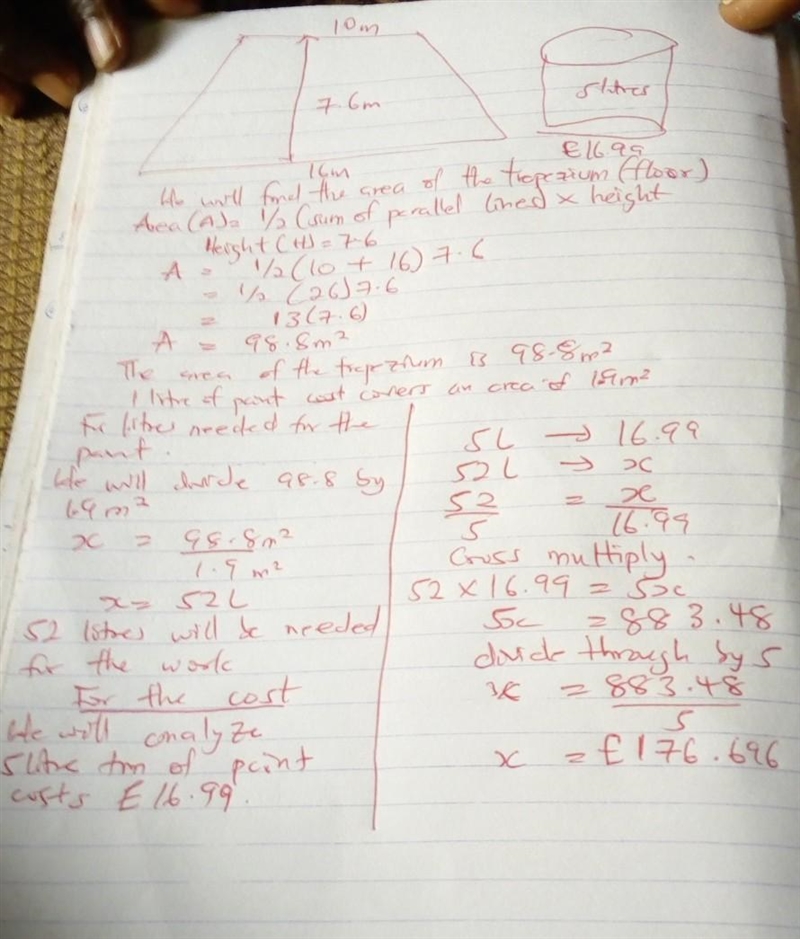 10m
7.6m
5litres
16m
£16.99
We will find the area of the trapezium (floor)
Area (A) = 1/2 (sum of parallel lines) x height
Height (H) = 7.6
A = 1/2 (10 + 16) 7.6
= 1/2 (26) 7.6
= 13 (7.6)
A = 98.8m²
The area of the trapezium is 98.8m²
1 litre of paint cost covers an area of 1.9m²
For litres needed for the
paint.
We will divide 98.8 by
1.9m²
x = 98.8m²
1.9m²
x = 52L
52 litres will be needed
for the work
For the cost
We will analyze
5 litre tin of paint
costs £16.99.
5L → 16.99
52L → x
52 = x
5 16.99
Cross multiply.
52 x 16.99 = 5x
5x = 883.48
divide through by 5
x = 883.48
5
x = £176.696